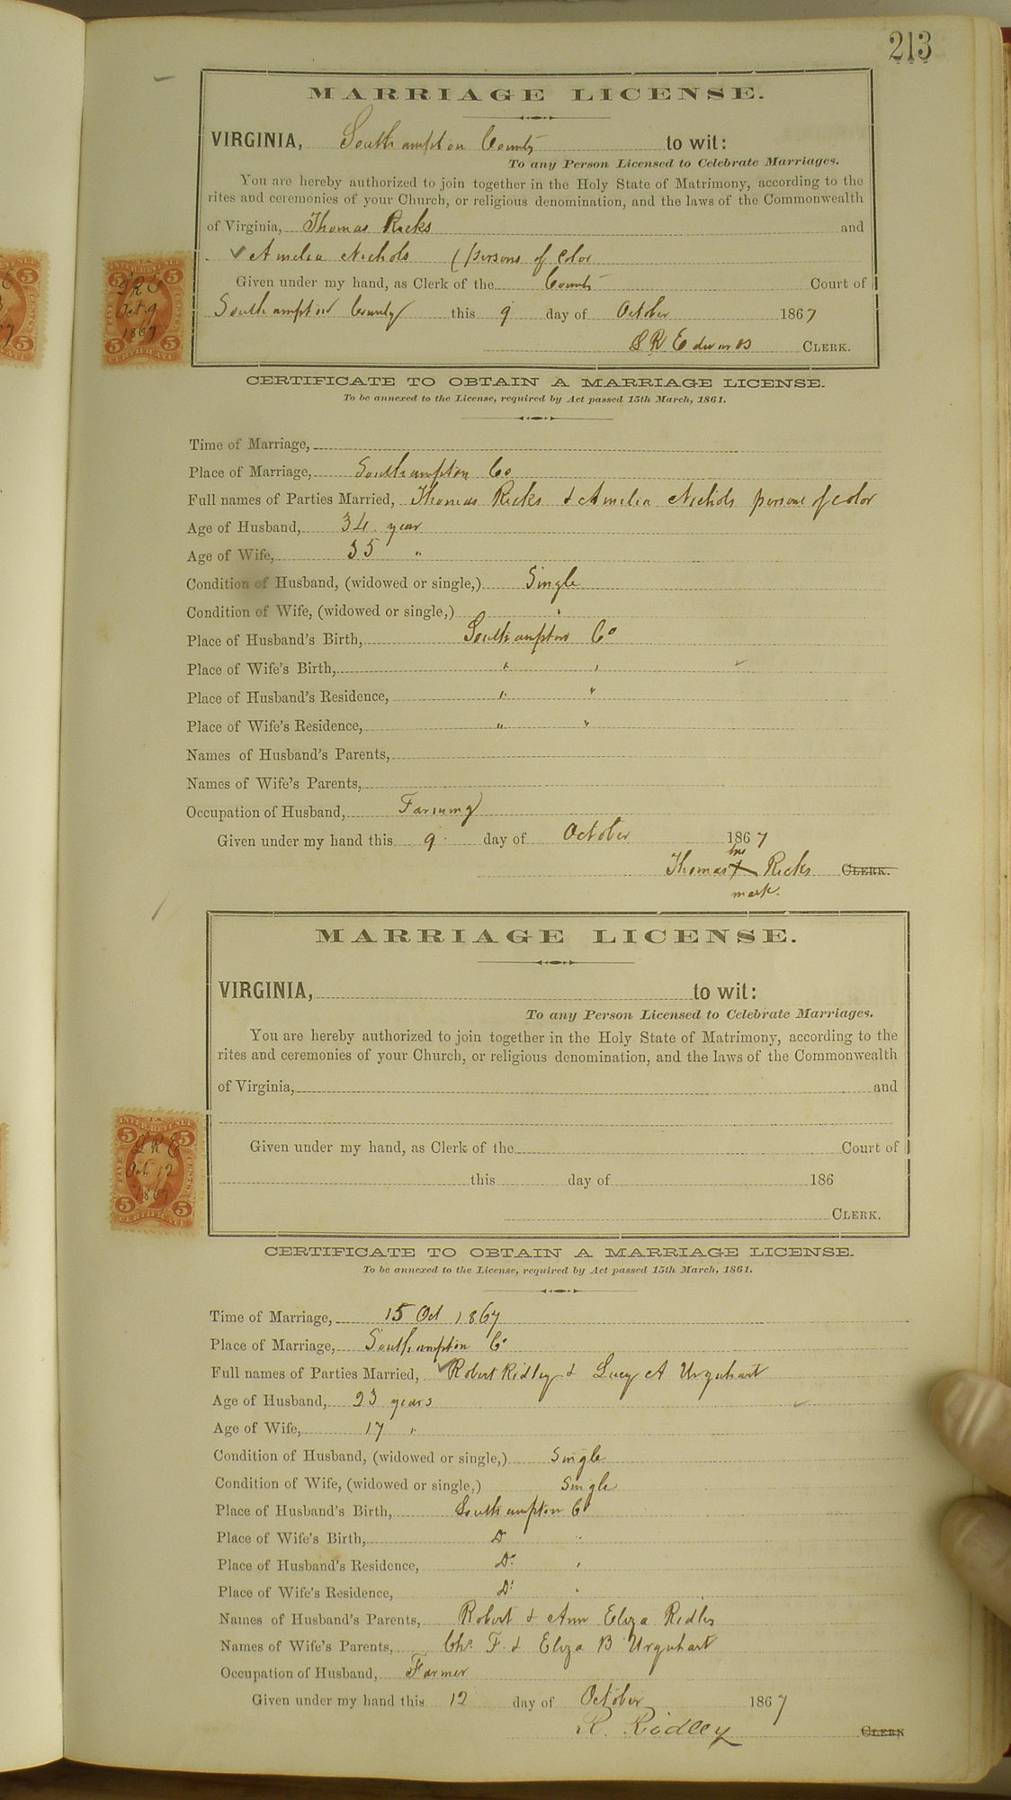 213
MARRIAGE LICENSE.
VIRGINIA, Southampton County to wit:
To any Person Licensed to Celebrate Marriages.
You are hereby authorized to join together in the Holy State of Matrimony, according to the
rites and ceremonies of your Church, or religious denomination, and the laws of the Commonwealth
of Virginia, Thomas Ricks and
Amelia Nichols (persons of Color
Given under my hand, as Clerk of the County Court of
Southampton County this 9 day of October 1867
Edwards CLERK.
5 5
Oct. 9
1867
5 5
CERTIFICATE
CERTIFICATE TO OBTAIN A MARRIAGE LICENSE.
To be annexed to the License, required by Act passed 15th March, 1861.
Time of Marriage,
Place of Marriage, Southampton Co
Full names of Parties Married, Thomas Ricks & Amelia Nichols persons of color
Age of Husband, 34 year
Age of Wife, 35 "
Condition of Husband, (widowed or single,) Single
Condition of Wife, (widowed or single,) "
Place of Husband's Birth, Southampton Co
Place of Wife's Birth, " "
Place of Husband's Residence, " "
Place of Wife's Residence, " "
Names of Husband's Parents,
Names of Wife's Parents,
Occupation of Husband, Farming
Given under my hand this 9 day of October 1867
his
Thomas X Ricks CLERK.
mark.
MARRIAGE LICENSE.
VIRGINIA, to wit:
To any Person Licensed to Celebrate Marriages.
You are hereby authorized to join together in the Holy State of Matrimony, according to the
rites and ceremonies of your Church, or religious denomination, and the laws of the Commonwealth
of Virginia, and
Given under my hand, as Clerk of the Court of
this day of 186
CLERK.
5 5
Oct 12
1867
5 5
CERTIFICATE
CERTIFICATE TO OBTAIN A MARRIAGE LICENSE.
To be annexed to the License, required by Act passed 15th March, 1861.
Time of Marriage, 15 Oct 1867
Place of Marriage, Southampton Co
Full names of Parties Married, Robert Ridley & Lucy A Urquhart
Age of Husband, 23 years
Age of Wife, 17 "
Condition of Husband, (widowed or single,) Single
Condition of Wife, (widowed or single,) Single
Place of Husband's Birth, Southampton Co
Place of Wife's Birth, Do "
Place of Husband's Residence, Do "
Place of Wife's Residence, Do "
Names of Husband's Parents, Robert & Ann Eliza Ridley
Names of Wife's Parents, Chs F & Eliza B Urquhart
Occupation of Husband, Farmer
Given under my hand this 12 day of October 1867
R. Ridley CLERK